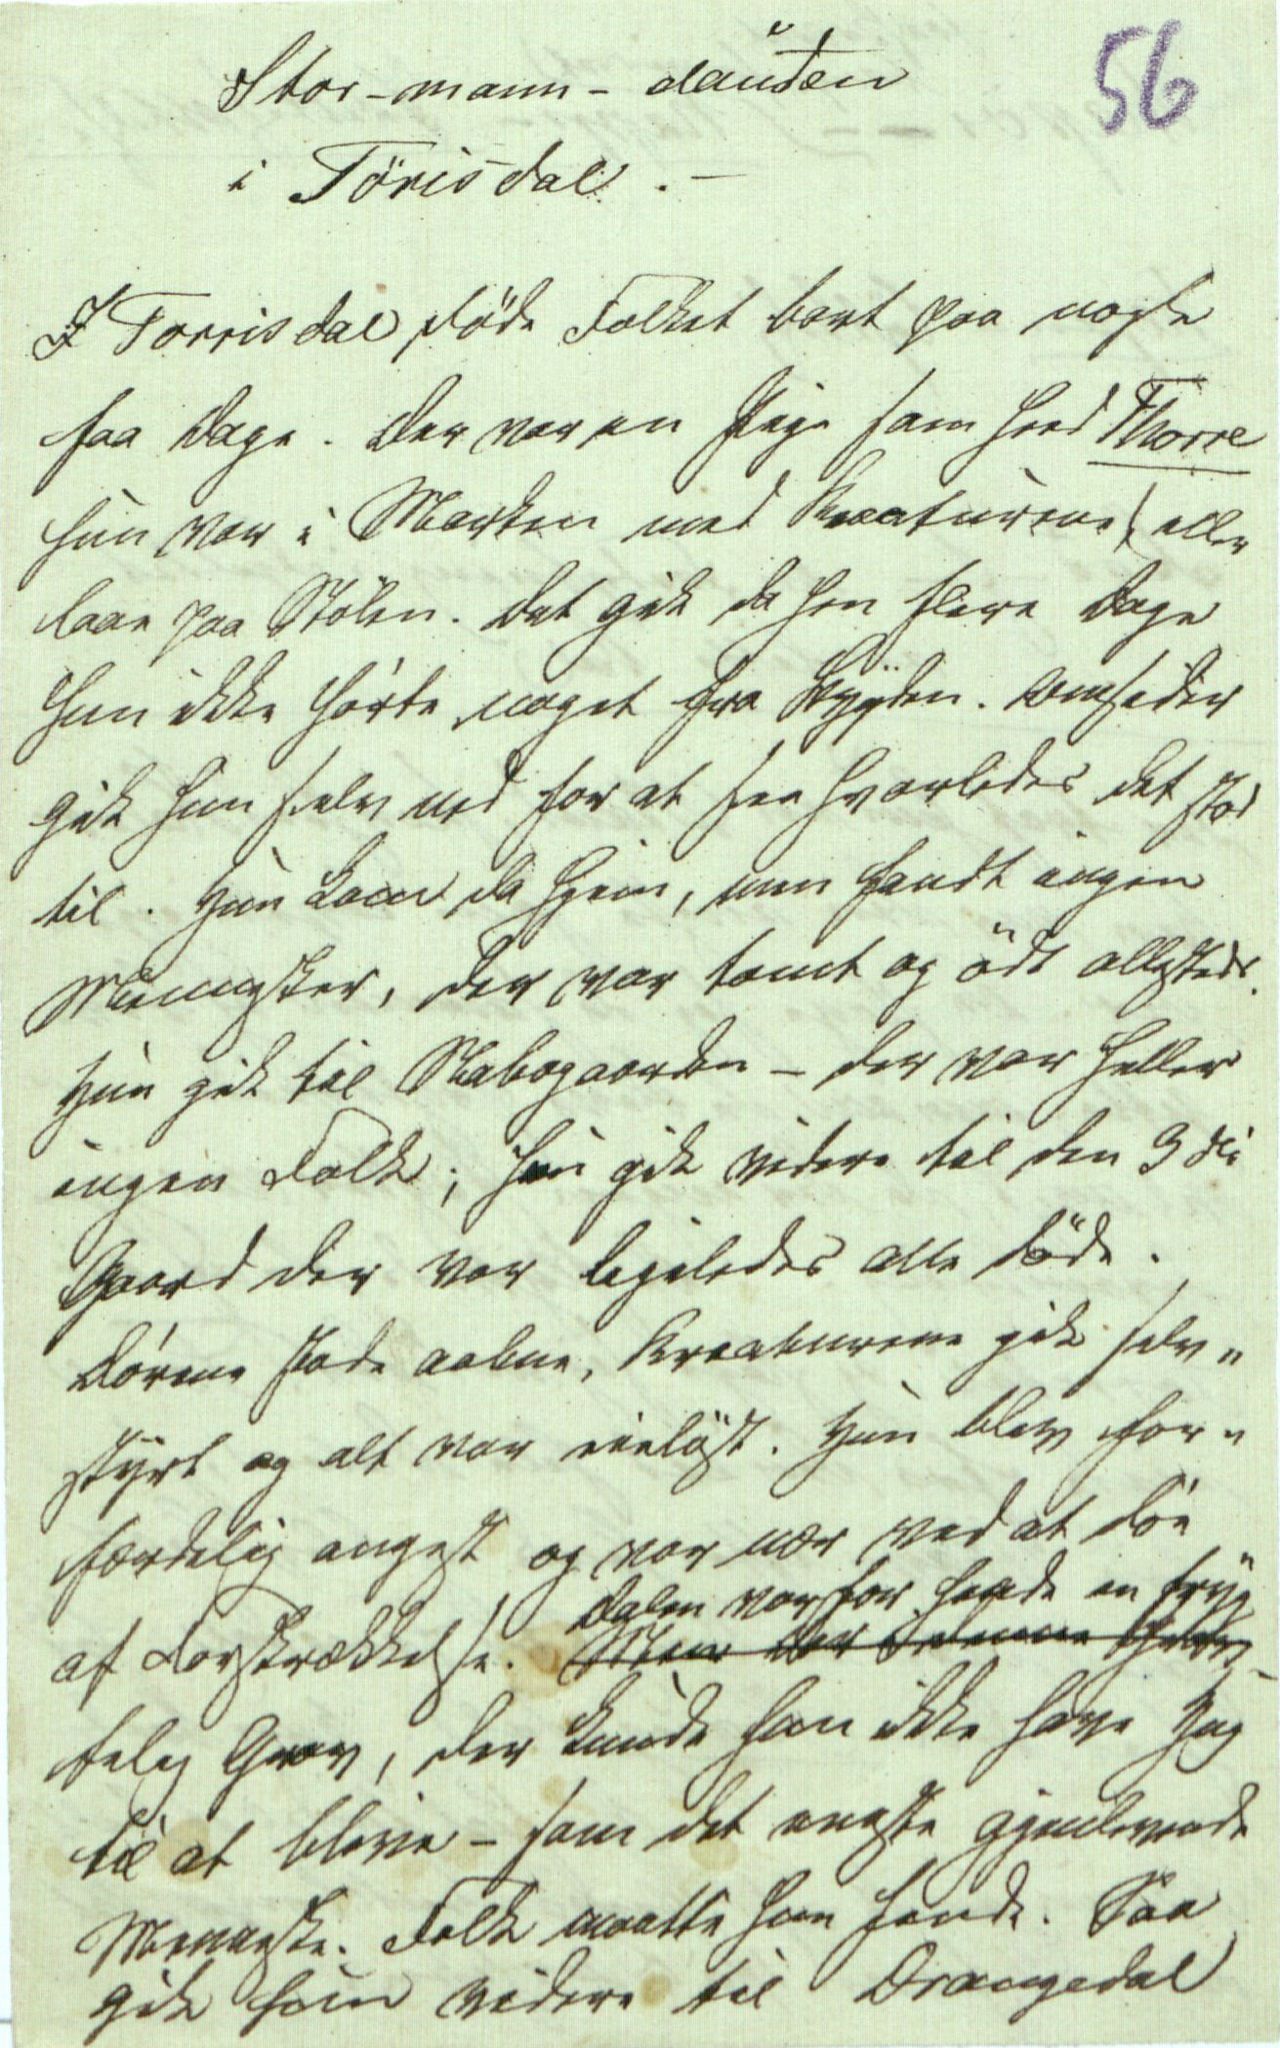 Stor-mann-dauden
56
i Törisdal. —
I Torrisdal döde Folket bort paa nogle
faa Dage. Der var en Pige som heed Thorre
hun var i Marken med Kreaturene) eller
laae paa Stölen. Det gik da hen flere Dage
hun ikke hörte noget fra Bygden. Omsider
gik hun selv ned for at see hvorledes det stod
til. Hun kom da hjem, men fandt ingen
Mennesker, der var tomt og ödt allesteds.
Hun gik til Nabogaarden – der var heller
ingen Folk; hun gik videre til den 3die
Gaard der var ligeledes alle döde.
Dörene stode aabne, Kreaturene gik selv„
styrt og alt var eielöst. Hun blev for„
færdelig angest og var nær ved at döe
Dalen var for hende en fryg
af Forskrækkelse. Men der i denne
telig Grav, der kunde hun ikke have Hug
til at blive – som det eneste gjenlevende
Menneske. Folk maatte hun finde. Saa
gik hun videre til Drangedal